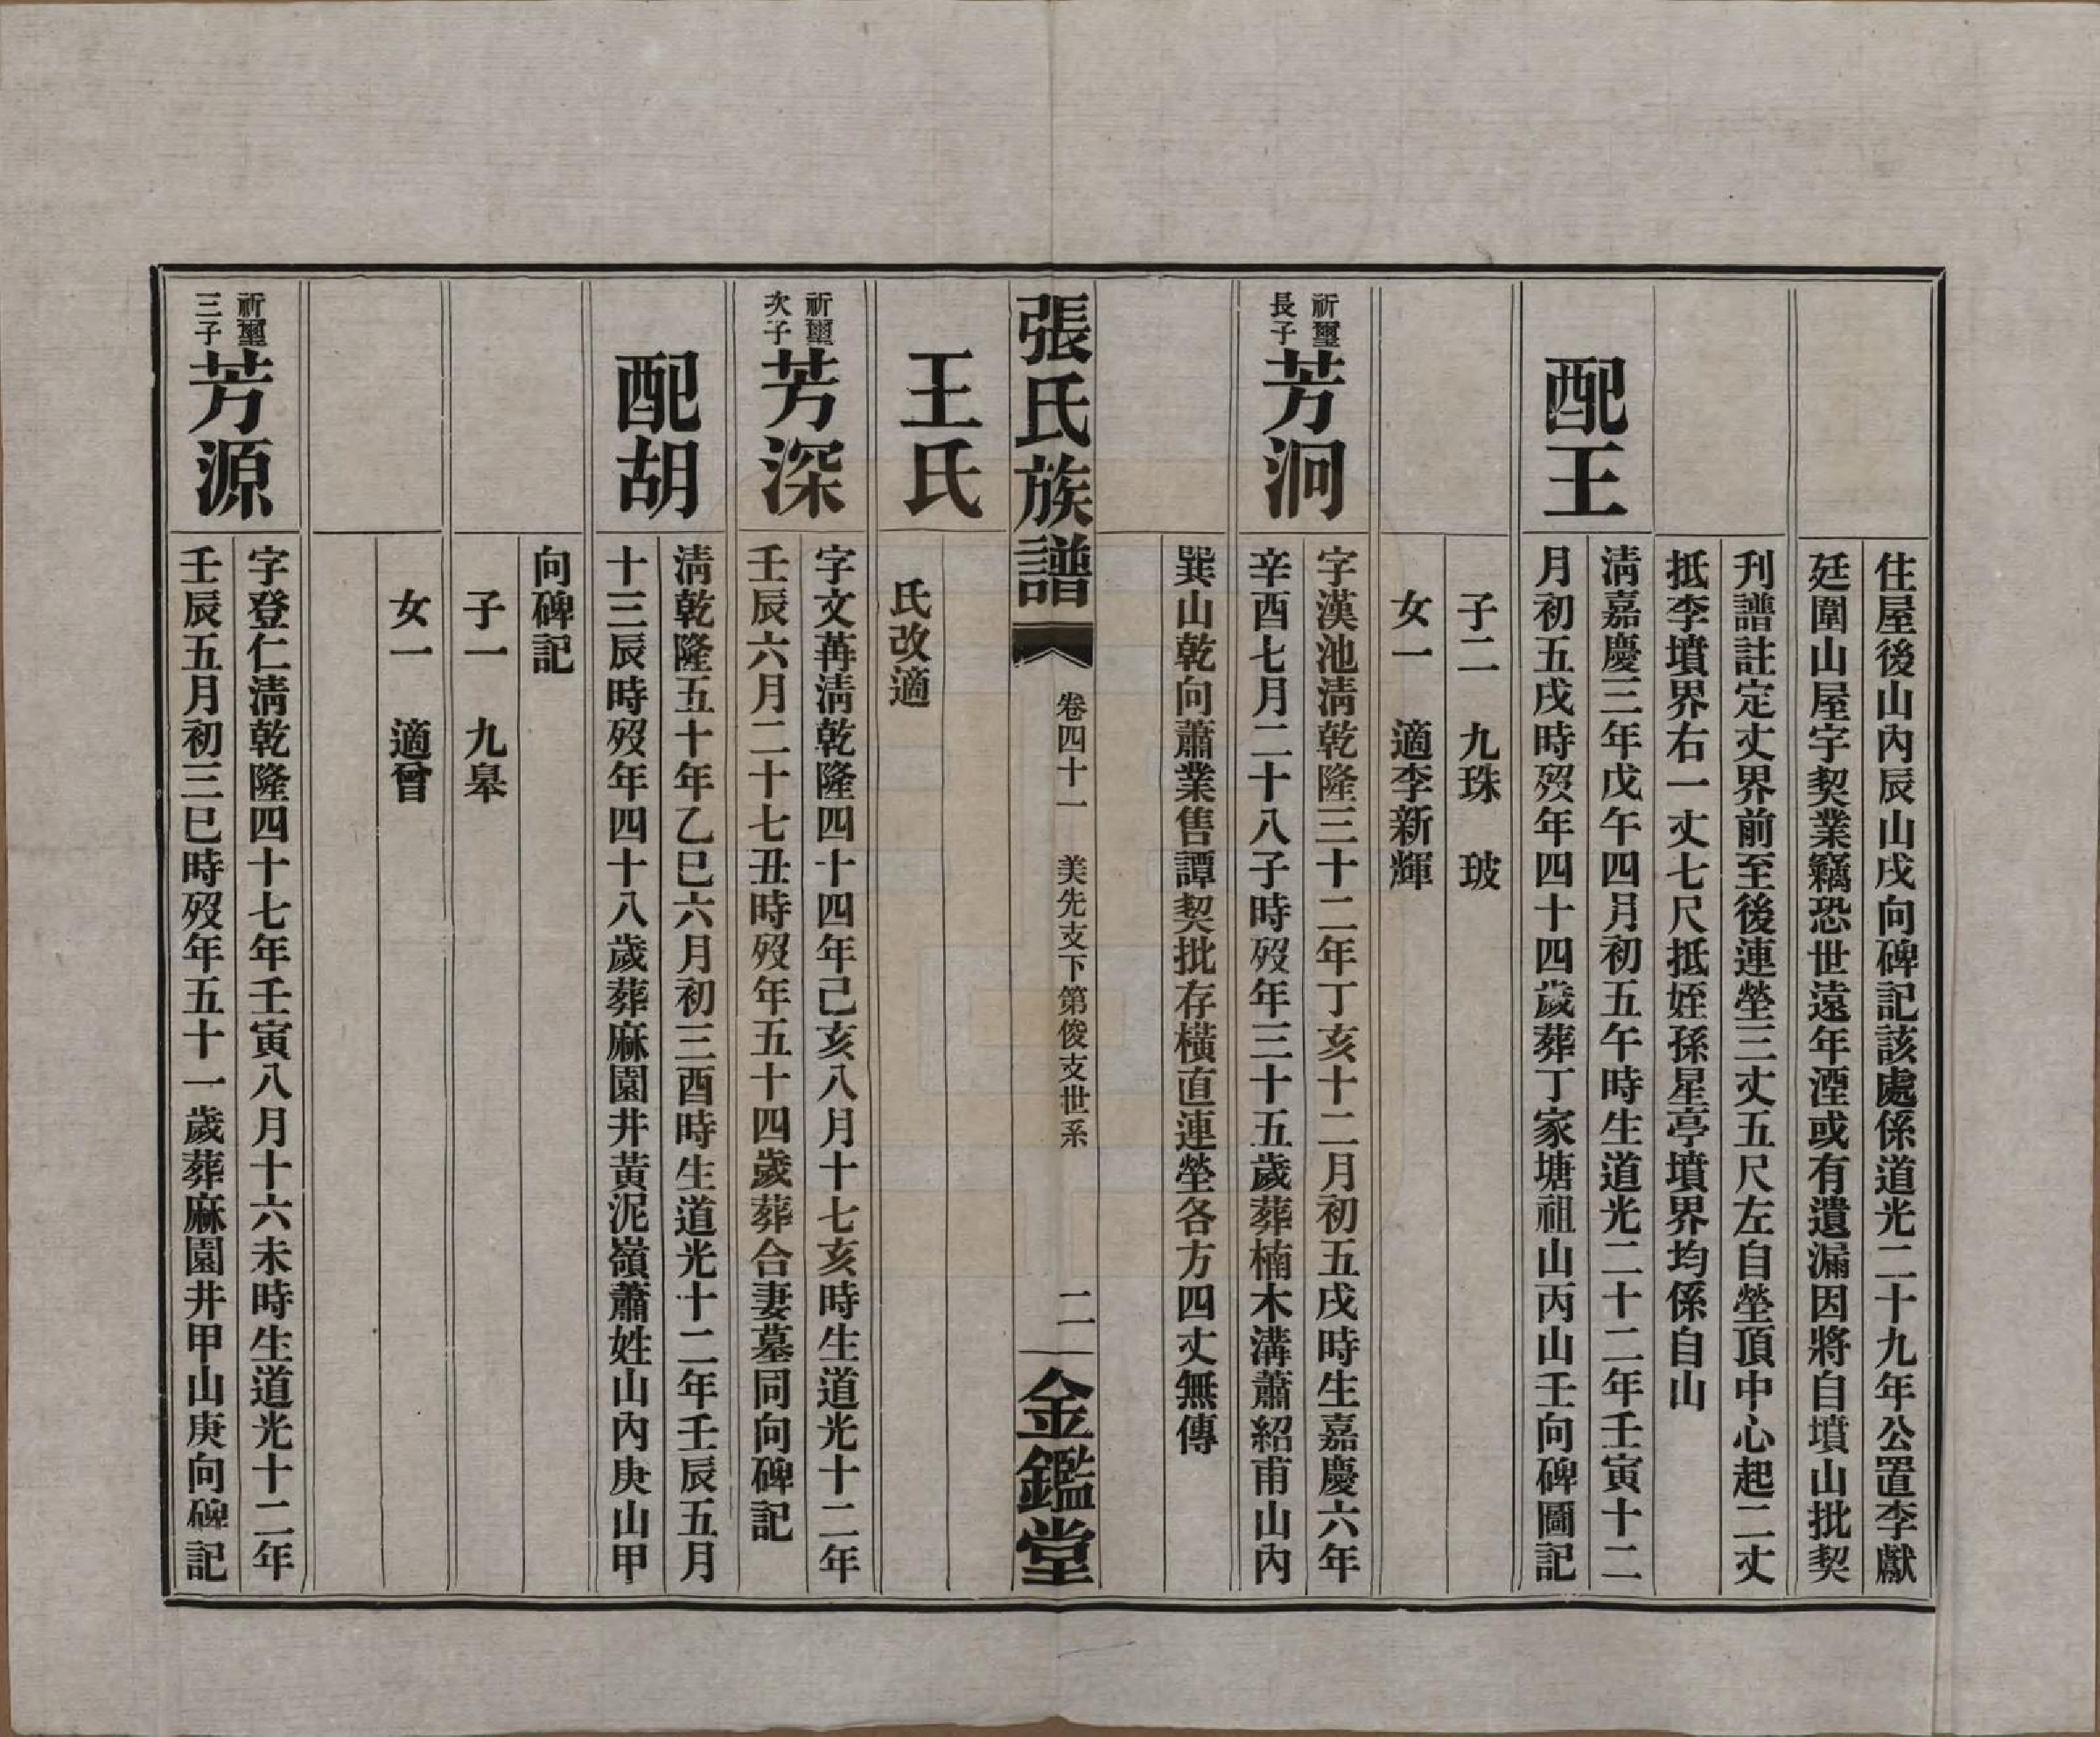 住屋後山內辰山戌向碑記該處係道光二十九年公置李獻
廷圍山屋宇契業竊恐世遠年湮或有遺漏因將自墳山批契
刋譜註定丈界前至後連塋三丈五尺左自塋頂中心起二丈
抵李墳界右一丈七尺抵姪孫星亭墳界均係自山
配王
淸嘉慶三年戊午四月初五午時生道光二十二年壬寅十二
月初五戌時歿年四十四歲葬丁家塘祖山丙山壬向碑圖記
子二　九珠　玻
女一　適李新輝
祈璽
長子
芳泂
字漢池淸乾隆三十二年丁亥十二月初五戌時生嘉慶六年
辛酉七月二十八子時歿年三十五歲葬楠木溝蕭紹甫山內
巽山乾向蕭業售譚契批存橫直連塋各方四丈無傳
張氏族譜　卷四十一　美先支下第俊支世系　二　金鑑堂
王氏
氏改適
祈璽
次子
芳深
字文苒淸乾隆四十四年己亥八月十七亥時生道光十二年
壬辰六月二十七丑時歿年五十四歲葬合妻墓同向碑記
配胡
淸乾隆五十年乙巳六月初三酉時生道光十二年壬辰五月
十三辰時歿年四十八歲葬麻園井黃泥嶺蕭姓山內庚山甲
向碑記
子一　九皋
女一　適曾
祈璽
三子
芳源
字登仁淸乾隆四十七年壬寅八月十六未時生道光十二年
壬辰五月初三巳時歿年五十一歲葬麻園井甲山庚向碑記